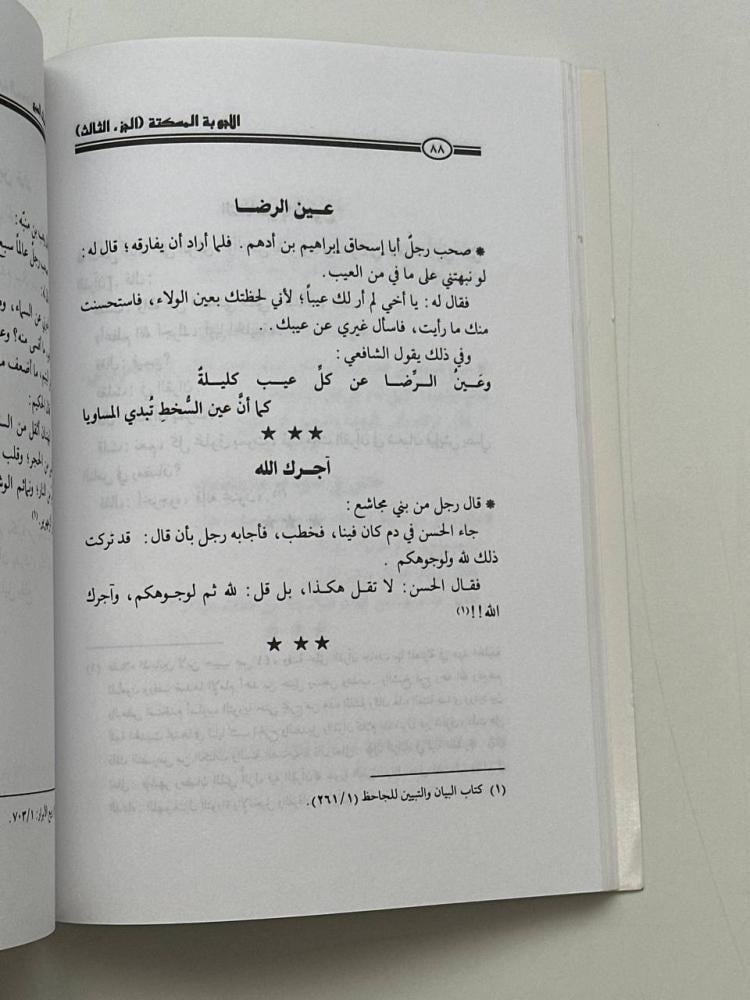 الأجوبة المسكتة (الجزء الثالث)
٨٨
عـين الرضـا
* صحب رجلٌ أبا إسحاق إبراهيم بن أدهم. فلما أراد أن يفارقه؛ قال له:
لو نبهتني على ما في من العيب.
فقال له: يا أخي لم أر لك عيباً؛ لأني لحظتك بعين الولاء، فاستحسنت
منك ما رأيت، فاسأل غيري عن عيبك..
وفي ذلك يقول الشافعي:
وعَـينُ الـرِّضـا عن كلِّ عيب كليلةٌ
كما أنَّ عين السُّخطِ تُبدي المساويا
★ ★★
آجـرك الله
* قال رجل من بني مجاشع:
جاء الحسن في دم كان فينا، فخطب، فأجابه رجل بأن قال: قد تركت
ذلك لله ولوجوهكم.
فقال الحسن: لا تقل هكذا، بل قل: لله ثم لوجوهكم، وآجرك
الله!!(١)
★ ★★
(١) كتاب البيان والتبيين للجاحظ (٢٦١/١).